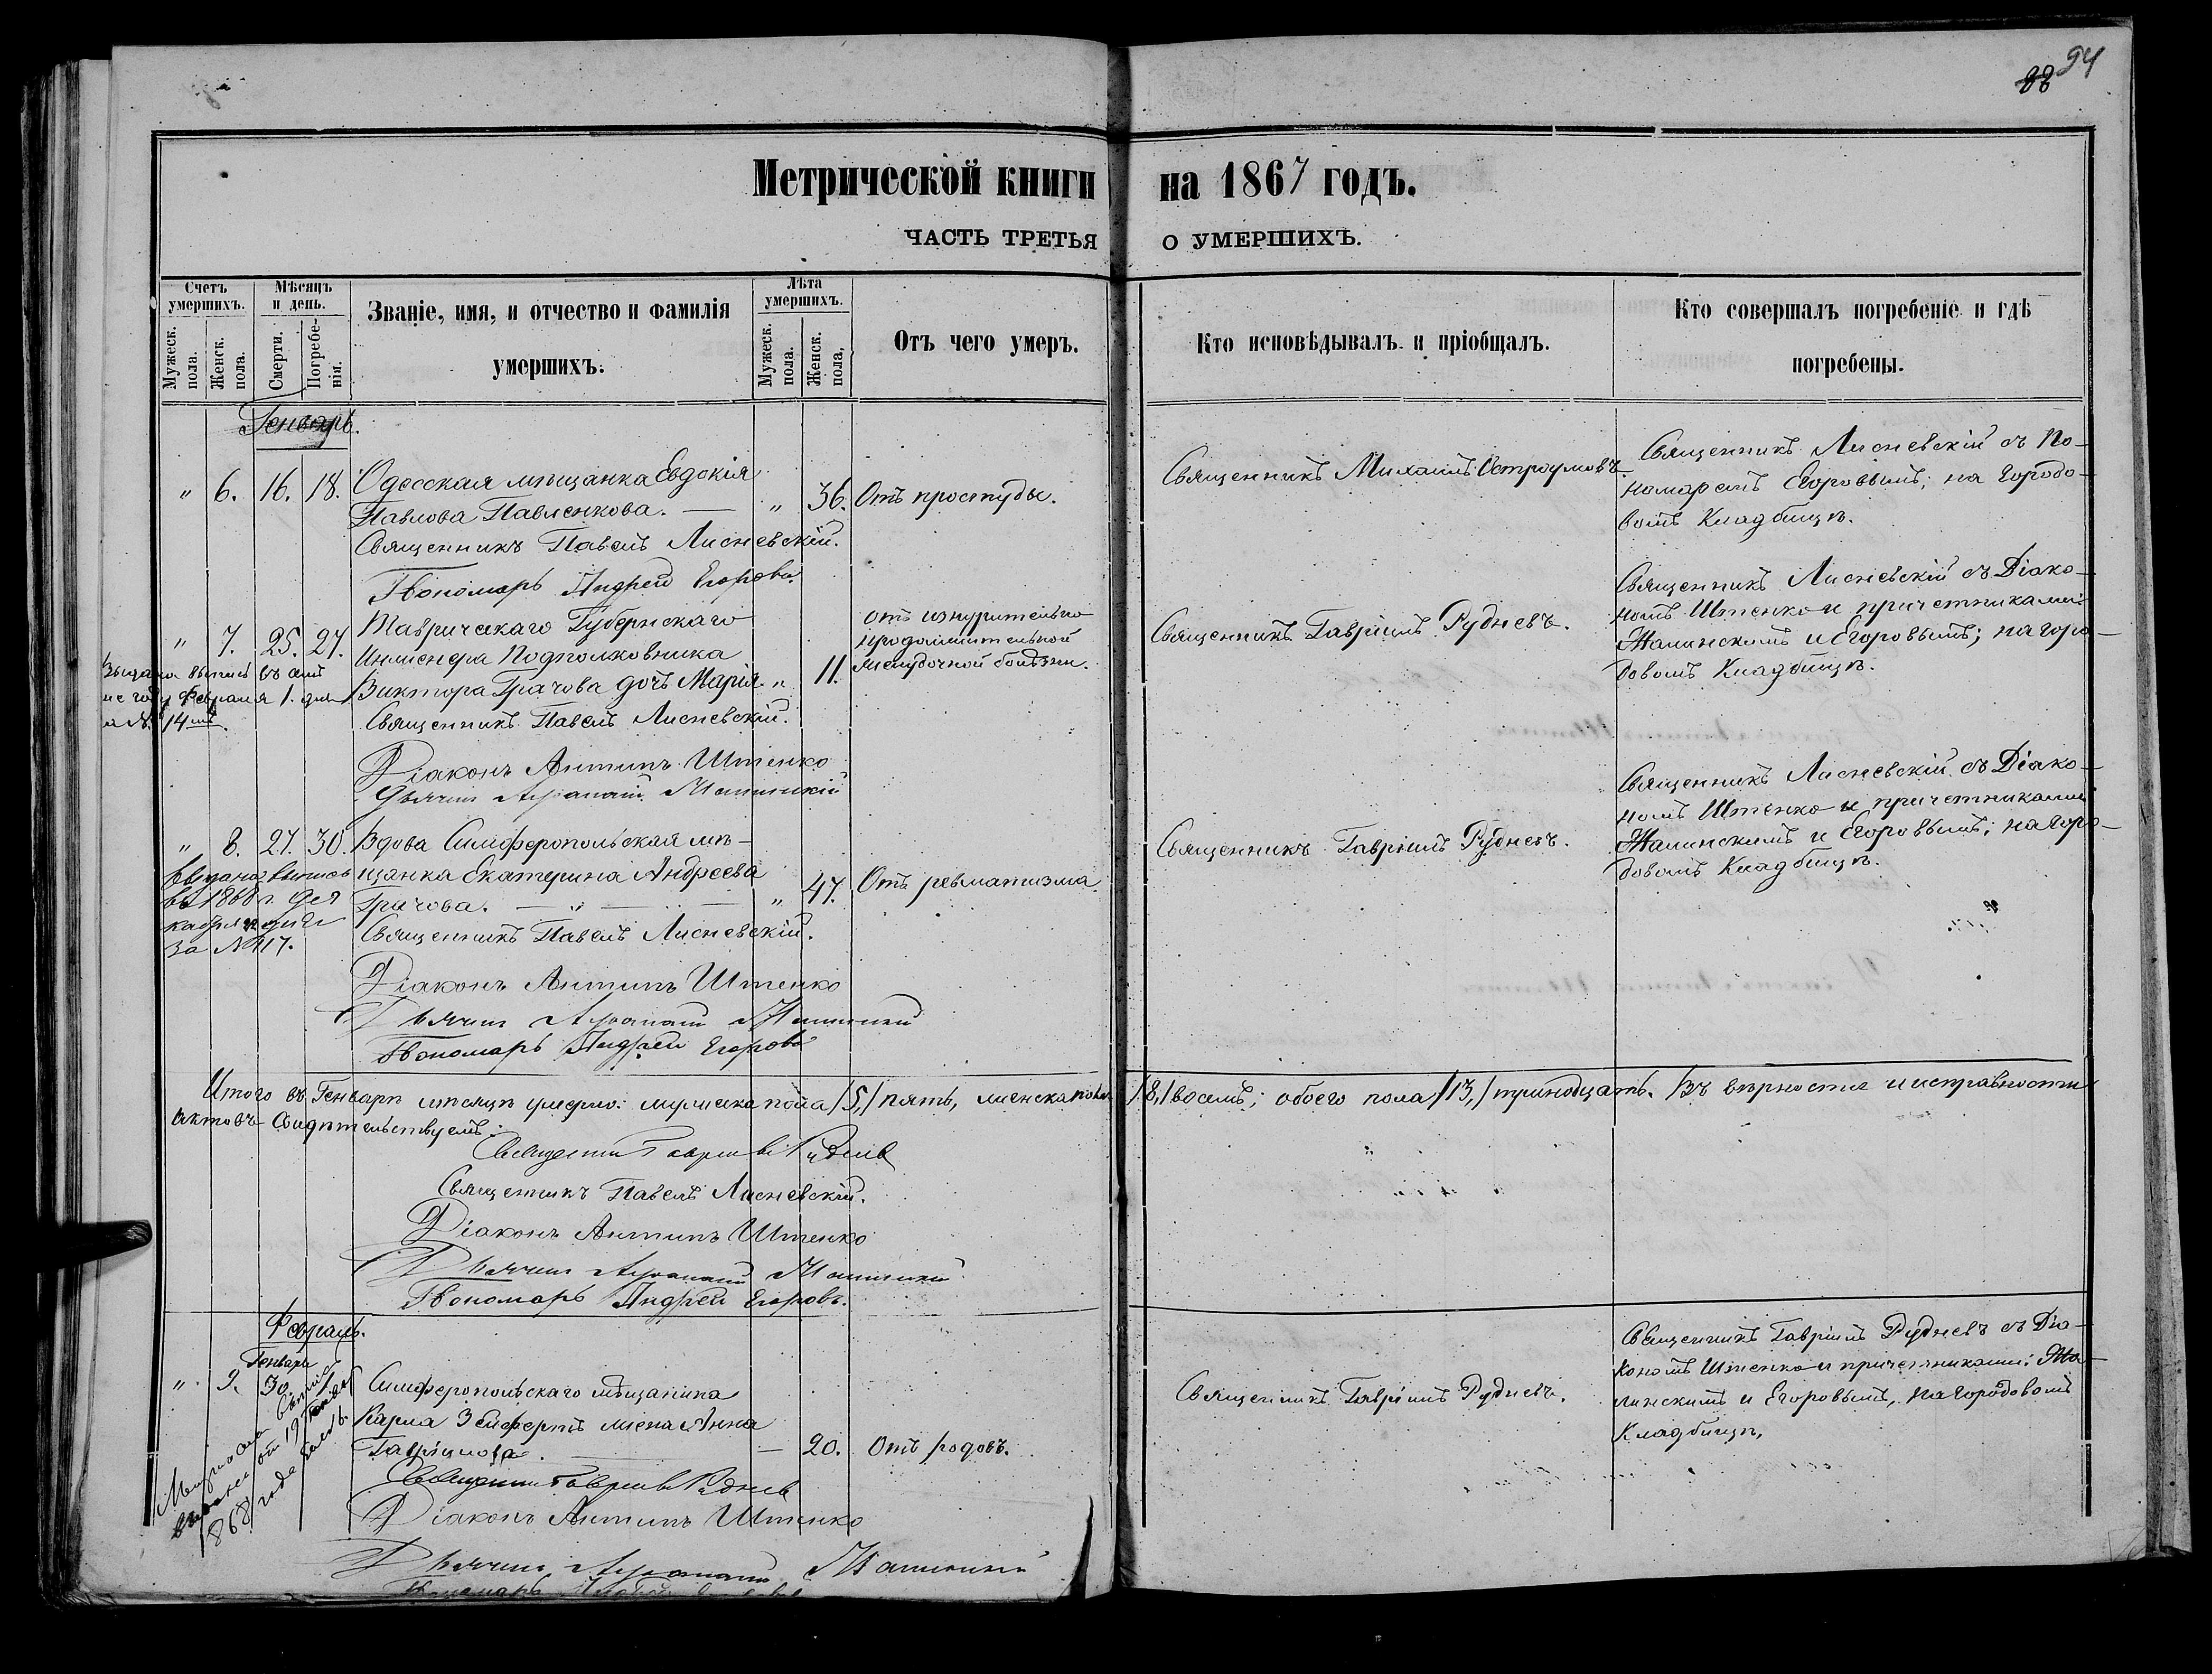 94
88
Метрической книги на 1867 годъ.
ЧАСТЬ ТРЕТЬЯ О УМЕРШИХЪ.
Счетъ умершихъ.
Мужеск. пола.
Женск. пола.
Мѣсяцъ и день.
Смерти.
Погребенія.
Званіе, имя, и отчество и фамилія
умершихъ.
Лѣта умершихъ.
Мужеск. пола.
Женск. пола,
Отъ чего умеръ.
Кто исповѣдывалъ и пріобщалъ.
Кто совершалъ погребеніе и гдѣ
погребены.
Генварь.
" 6. 16. 18. Одесская мѣщанка Евдокія
Павлова Павленкова. — " 36. Отъ простуды.
Священникъ Павелъ Лисневскій.
Пономарь Андрей Егоровъ.
Священникъ Михаилъ Остроумовъ.
Священникъ Лисневскій съ По-
номаремъ Егоровымъ; на городо-
вомъ Кладбищѣ.
" 7. 25. 27. Таврическаго Губернскаго
Инженера Подполковника
Виктора Грачова дочь Марія. " 11.
отъ изнурительно
продолжительной
желудочной болѣзни.
Выдана выпись въ семъ
же году Февраля 1. дня
за №. 14мъ.
Священникъ Павелъ Лисневскій.
Діаконъ Антипъ Штенко
Дьячекъ
Священникъ Гавріилъ Рудневъ.
Священникъ Лисневскій съ Діако-
номъ Штенко и причетниками:
Жалинскимъ и Егоровымъ; на горо-
довомъ Кладбищѣ.
" 8. 27. 30. Вдова Симферопольская мѣ-
щанка Екатерина Андреева
Грачова. — " — " 47. Отъ ревматизма.
Выдана выпись
въ 1868 г. Де
кабря дня
за № 117.
Священникъ Павелъ Лисневскій.
Діаконъ Антипъ Штенко
Дьячекъ
Пономарь Андрей Егоровъ
Священникъ Гавріилъ Рудневъ.
Священникъ Лисневскій съ Діако-
номъ Штенко и причетниками
Жалинскимъ и Егоровымъ; на горо-
довомъ Кладбищѣ.
Итого въ Генварѣ мѣсяцѣ умерло: мужеска пола /5,/ пять, женска пола /8,/ восемь; обоего пола /13,/ тринадцать. Въ вѣрности и исправности
актовъ свидѣтельствуемъ:
Священникъ Гавріилъ Рудневъ
Священникъ Павелъ Лисневскій.
Діаконъ Антипъ Штенко
Дьячекъ
Пономарь Андрей Егоровъ.
Февраль.
Генваря
" 9. 30. 1. Симферопольскаго мѣщанина
Карла Зейферта жена Анна
Гавріилова. — — 20. Отъ родовъ.
выдана
1868 года
Священникъ Гавріилъ Рудневъ
Діаконъ Антипъ Штенко
Дьячекъ
Пономарь
Священникъ Гавріилъ Рудневъ.
Священникъ Гавріилъ Рудневъ съ Діа-
кономъ Штенко и причетниками: Жа-
линскимъ и Егоровымъ, на городовомъ
Кладбищѣ,